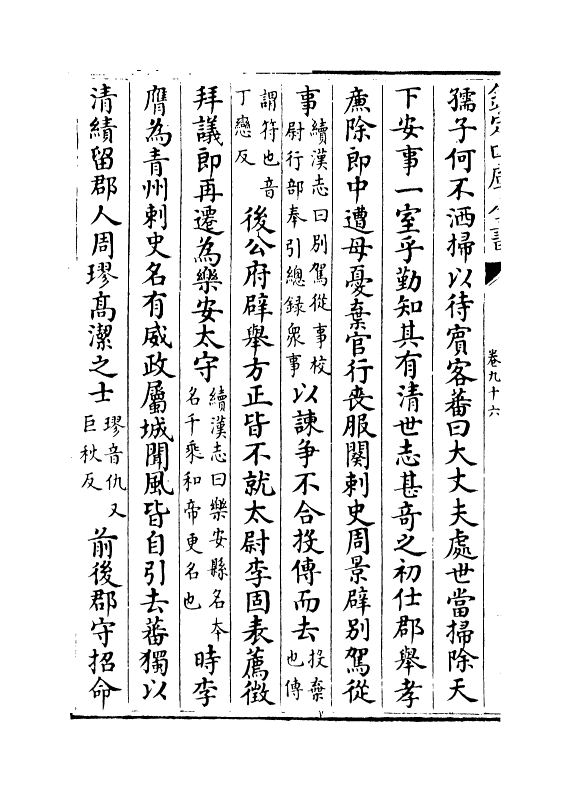 欽定四庫全書
卷九十六
孺子何不洒掃以待賔客蕃曰大丈夫處世當掃除天
下安事一室乎勤知其有清世志甚竒之初仕郡舉孝
廉除郎中遭母憂棄官行喪服闋刺史周景辟別駕從
事續漢志曰別駕從事校尉行部奉引總録衆事以諫爭不合投傳而去投棄也傳
謂符也音丁戀反後公府辟舉方正皆不就太尉李固表薦徵
拜議郎再遷為樂安太守續漢志曰樂安縣名本名千乘和帝更名也時李
膺為青州刺史名有威政屬城聞風皆自引去蕃獨以
清績留郡人周璆髙潔之士璆音仇又巨秋反前後郡守招命